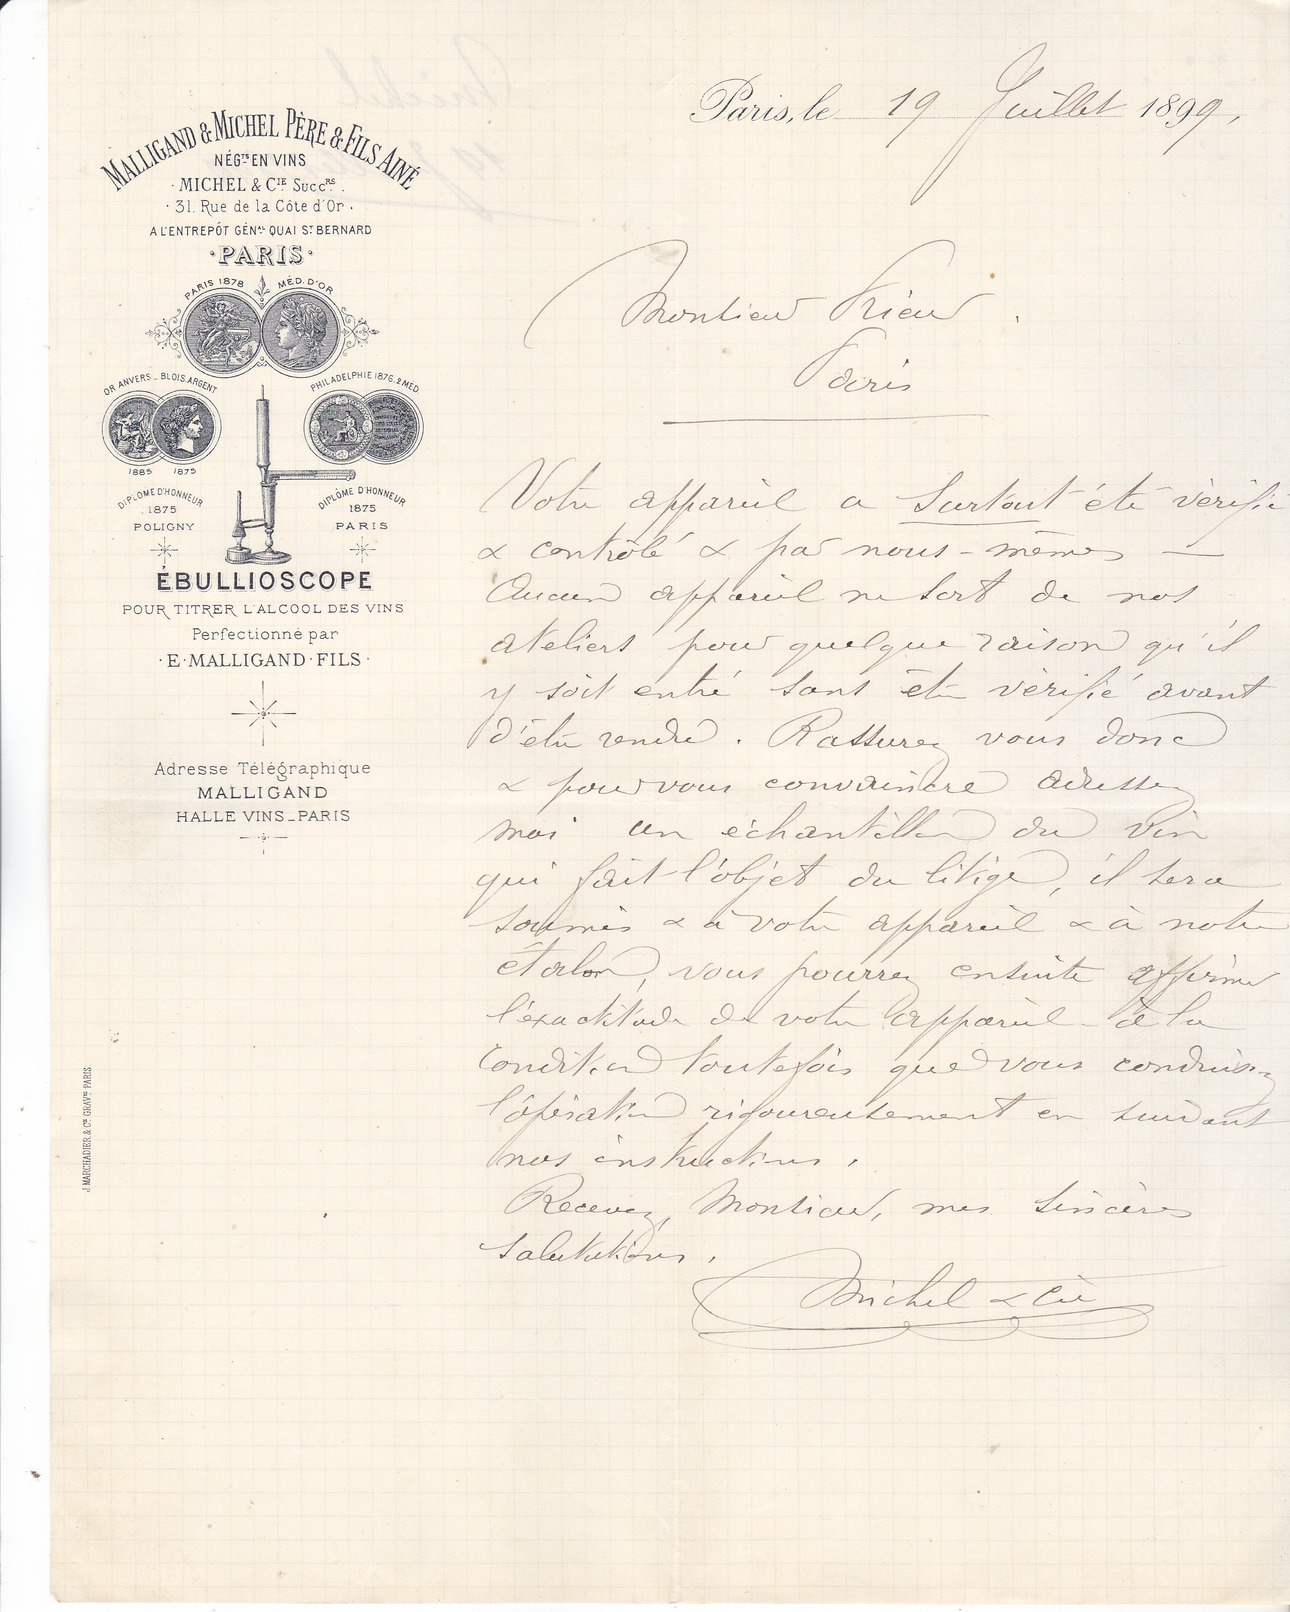 MALLIGAND & MICHEL PÈRE & FILS AINÉ
NÉGTS EN VINS
· MICHEL & CIE SUCCRS ·
· 31. Rue de la Côte d'Or ·
A L'ENTREPÔT GÉNAL QUAI ST BERNARD
· PARIS ·
PARIS 1878 MÉD. D'OR
OR ANVERS _ BLOIS. ARGENT
PHILADELPHIE 1876. 2 MÉD
1885 1875
DIPLOME D'HONNEUR
1875
POLIGNY
DIPLÔME D'HONNEUR
1875
PARIS
ÉBULLIOSCOPE
POUR TITRER L'ALCOOL DES VINS
Perfectionné par
· E · MALLIGAND · FILS ·
Adresse Télégraphique
MALLIGAND
HALLE VINS _ PARIS
J. MARCHADIER & CIE GRAVRS PARIS
Paris, le 19 Juillet 1899,
Monsieur
Paris
Votre appareil a surtout été vérifié
& contrôlé & par nous-mêmes —
Aucun appareil ne sort de nos
ateliers pour quelque raison qu'il
y soit entré sans être vérifié avant
d'être rendu. Rassurez vous donc
& pour vous convaincre adressez
moi un échantillon du vin
qui fait l'objet du litige, il sera
soumis & à votre appareil & à notre
étalon, vous pourrez ensuite affirmer
l'exactitude de votre appareil - à la
condition toutefois que vous conduisiez
l'opération rigoureusement en suivant
nos instructions.
Recevez, Monsieur, mes sincères
salutations.
Michel & Cie